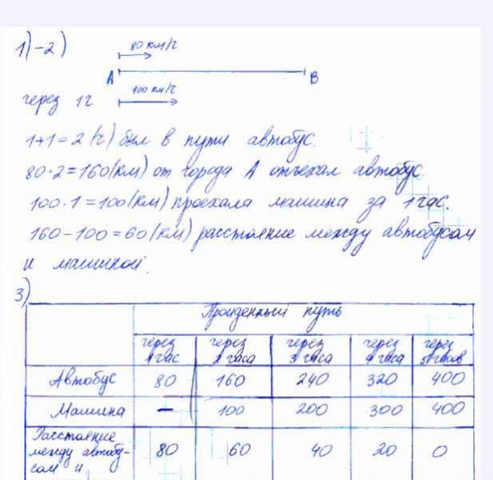 1)-2)
80 км/ч
А В
через 1ч
100 км/ч
1+1=2 (ч) был в пути автобус.
80·2=160(км) от города А отъехал автобус
100·1=100(км) проехала машина за 1 час.
160-100=60(км) расстояние между автобусом
и машиной.
3)
Пройденный путь
через 1 час через 2 часа через 3 часа через 4 часа через 5 часов
Автобус 80 160 240 320 400
Машина – 100 200 300 400
Расстояние между автобу-сом и 80 60 40 20 0